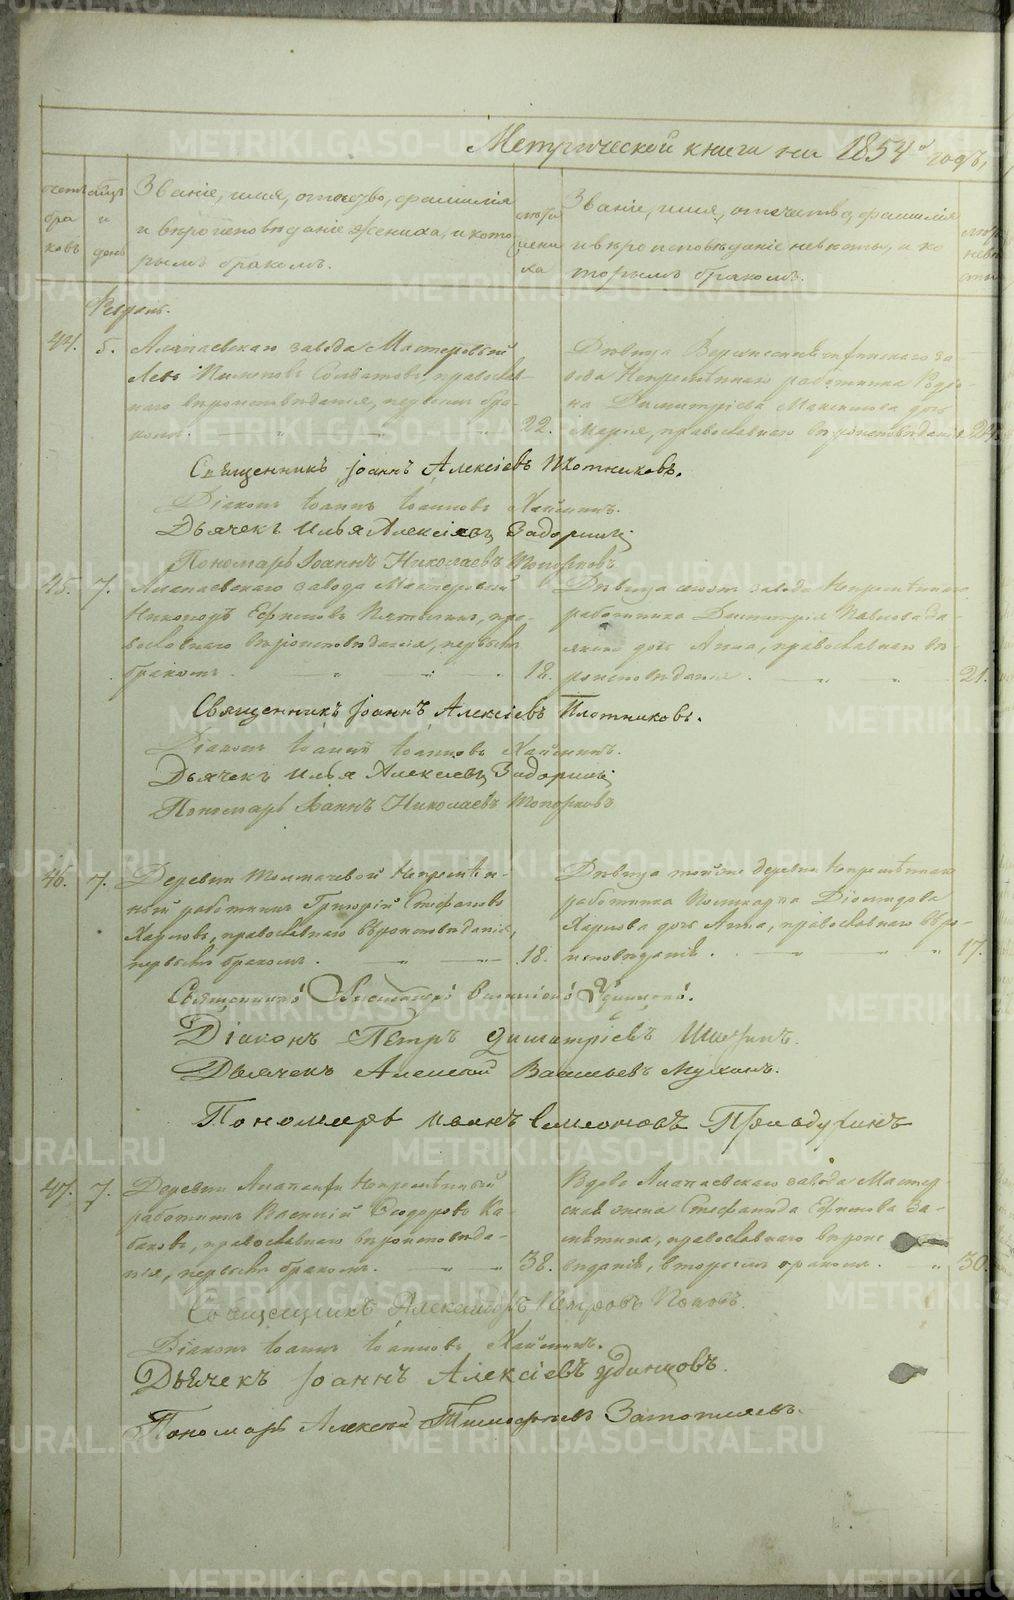 Метрической книги на 1854й годъ,
Счетъ браковъ
Мѣсяцъ и день
Званіе, имя, отчество, фамилія
и вѣроисповѣданіе жениха, и кото
рымъ бракомъ.
Лѣта жениха
Званіе, имя, отчество, фамилія
и вѣроисповѣданіе невѣсты, и ко
торымъ бракомъ.
Февраль.
44. 5. Алапаевскаго завода Мастеровый
Левъ Пименовъ Солдатовъ, православ-
наго вѣроисповѣданія, первымъ бра-
комъ. 22.
Дѣвица Верхнесинячихинскаго за-
вода Непремѣннаго работника
Димитріева дочь
Марія, православнаго вѣроисповѣданія.
Священникъ Іоаннъ Алексіевъ Плотниковъ.
Діаконъ Іоаннъ Іоанновъ
Дьячекъ Илья Алексіевъ Задоринъ
Пономарь Іоаннъ Николаевъ Топорковъ
45. 7. Алапаевскаго завода Мастеровый
Никодимъ Ефимовъ пра-
вославнаго вѣроисповѣданія, первымъ
бракомъ. 18.
Дѣвица сегожъ завода Непремѣннаго
работника Димитрія Павлова
дочь Анна, православнаго вѣ-
роисповѣданія. 21.
Священникъ Іоаннъ Алексіевъ Плотниковъ.
Діаконъ Іоаннъ Іоанновъ
Дьячекъ Илья Алексіевъ Задоринъ
Пономарь Іоаннъ Николаевъ Топорковъ
46. 7. Деревни Толмачевой Непремѣн-
ный работникъ Григорій Стефановъ
Харловъ, православнаго вѣроисповѣданія,
первымъ бракомъ. 18.
Дѣвица тойже деревни Непремѣннаго
работника Поликарпа Діомидова
Харлова дочь Анна, православнаго вѣро-
исповѣданія. 17.
Священникъ Удинцовъ.
Діаконъ Петръ Димитріевъ Шишкинъ.
Дьячекъ Алексій Васильевъ Мухинъ.
Пономарь Иванъ Симеоновъ
47. 7. Деревни Алапаихи Непремѣнный
работникъ Василій Ѳеодоровъ Ка-
баковъ, православнаго вѣроисповѣда-
нія, первымъ бракомъ. 38.
Вдова Алапаевскаго завода Мастер-
ская жена Стефанида Ефимова За-
мѣтина, православнаго вѣроис
вѣданія, вторымъ бракомъ. 30.
Священникъ Александръ Петровъ Поповъ.
Діаконъ Іоаннъ Іоанновъ
Дьячекъ Іоаннъ Алексіевъ Удинцовъ.
Пономарь Алексій Тимофѣевъ
METRIKI.GASO-URAL.RU